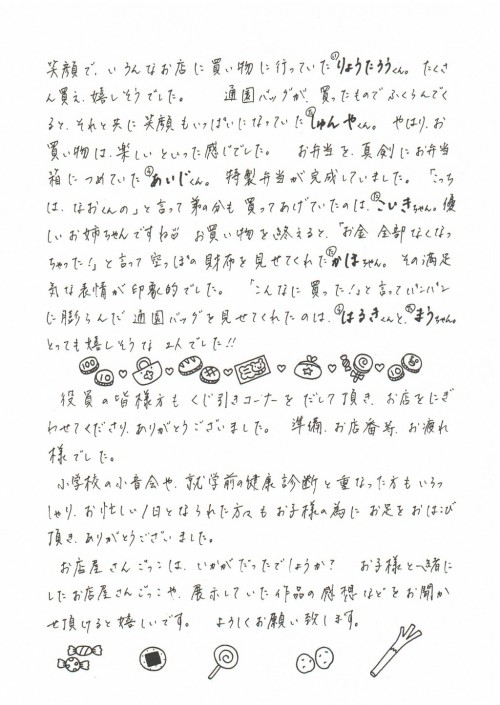 笑顔で、いろんなお店に買い物に行っていたりょうたろうくん。たくさ
ん買え、嬉しそうでした。 通園バッグが、買ったものでふくらんでく
ると、それと共に笑顔もいっぱいになっていたしゅんやくん。やはり、お
買い物は、楽しいといった感じでした。 お弁当を、真剣にお弁当
箱につめていたあいじくん。特製弁当が完成していました。「こっち
は、なおくんの」と言って弟の分も買ってあげていたのは、こいきちゃん。優
しいお姉ちゃんですね お買い物を終えると、「お金 全部なくなっ
ちゃった!」と言って空っぽの財布を見せてくれたかほちゃん。その満足
気な表情が印象的でした。 「こんなに買った!」と言ってパンパン
に膨らんだ通園バッグを見せてくれたのは、はるきくんと、まうちゃん。
とっても嬉しそうな2人でした!!
100 10 10
役員の皆様方も くじ引きコーナーをだして頂き、お店をにぎ
わせてくださり、ありがとうございました。 準備、お店番等、お疲れ
様でした。
小学校の小音会や、就学前の健康診断と重なった方もいらっ
しゃり、お忙しい1日となられた方々もお子様の為にお足をおはこび
頂き、ありがとうございました。
お店屋さんごっこは、いかがだったでしょうか? お子様と一緒に
したお店屋さんごっこや、展示していた作品の感想などをお聞か
せ頂けると嬉しいです。 よろしくお願い致します。